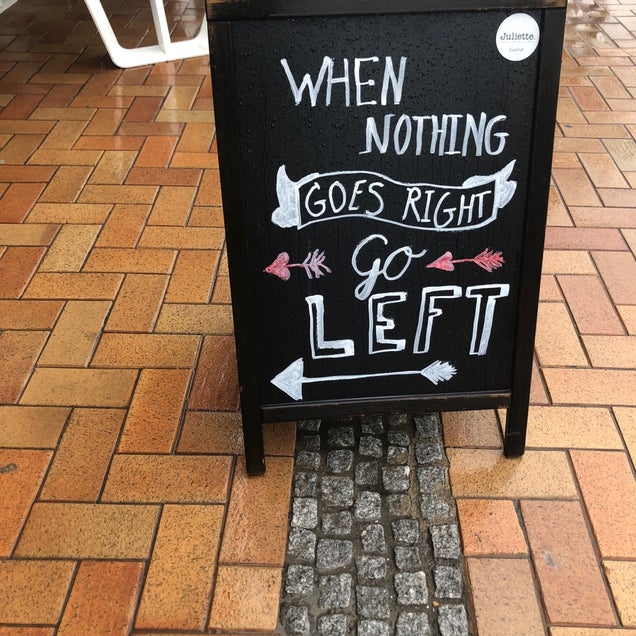 Juliette.
WHEN
NOTHING
GOES RIGHT
Go
LEFT